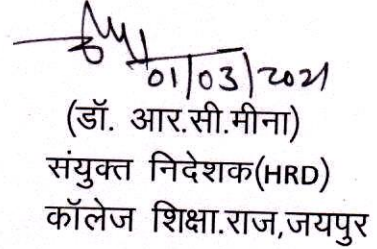 01/03/2021
(डॉ. आर.सी.मीना)
संयुक्त निदेशक(HRD)
कॉलेज शिक्षा.राज,जयपुर